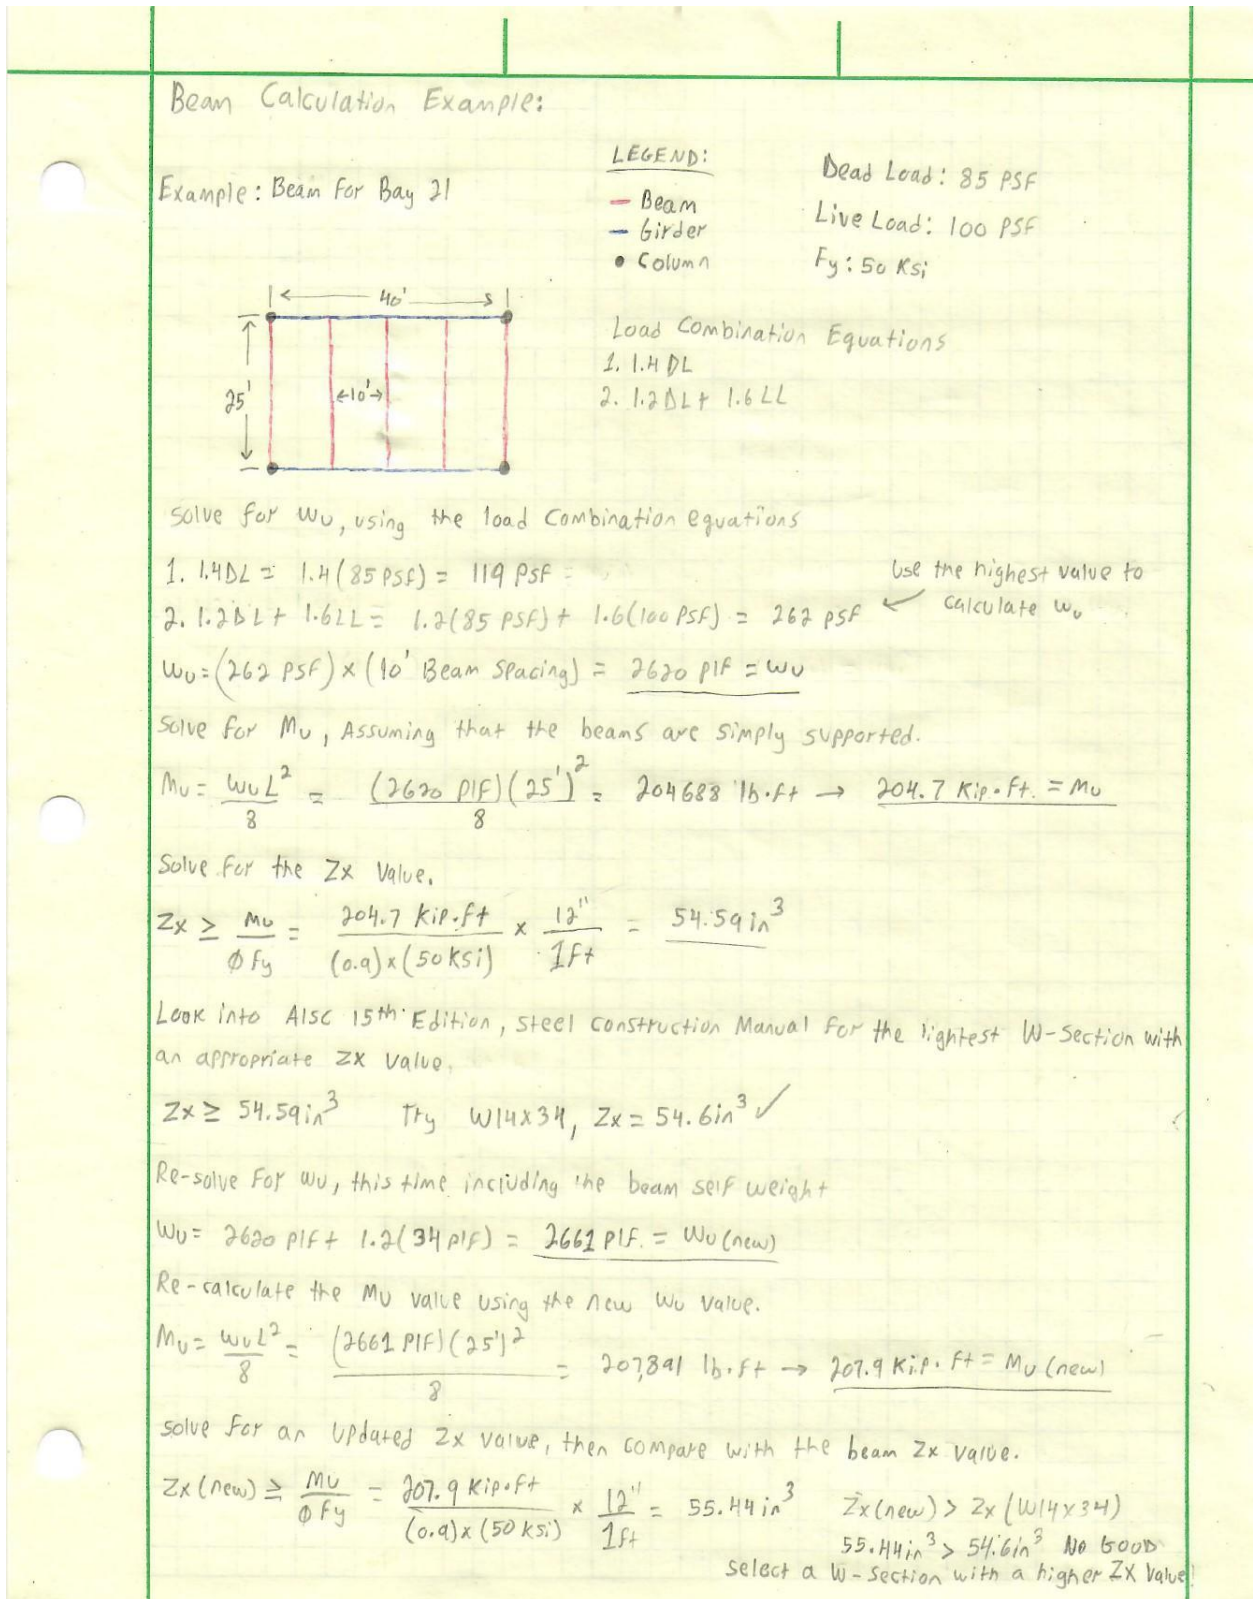 Beam Calculation Example:
Example: Beam For Bay 21
LEGEND:
- Beam
- Girder
• Column
Dead Load: 85 PSF
Live Load: 100 PSF
Fy: 50 Ksi
40'
25'
10'
Load Combination Equations
1. 1.4 DL
2. 1.2DL + 1.6 LL
Solve for Wu, using the load combination equations
1. 1.4DL = 1.4(85 PSF) = 119 PSF
2. 1.2DL + 1.6LL = 1.2(85 PSF) + 1.6(100 PSF) = 262 PSF
Use the highest value to
calculate Wu
Wu = (262 PSF) × (10' Beam Spacing) = 2620 PlF = Wu
Solve for Mu, Assuming that the beams are simply supported.
Mu = WuL²/8 = (2620 PlF)(25')²/8 = 204688 lb·ft → 204.7 Kip·ft. = Mu
Solve for the Zx Value.
Zx ≥ Mu/ØFy = 204.7 Kip·ft/(0.9)×(50 Ksi) × 12"/1ft = 54.59 in³
Look into AISC 15th Edition, Steel Construction Manual for the lightest W-Section with
an appropriate Zx Value.
Zx ≥ 54.59in³ Try W14x34, Zx = 54.6in³ ✓
Re-solve for Wu, this time including the beam self weight
Wu = 2620 PlF + 1.2(34 PlF) = 2661 PlF. = Wu (new)
Re-calculate the Mu value using the new Wu value.
Mu = WuL²/8 = (2661 PlF)(25')²/8 = 207,891 lb·ft → 207.9 Kip·ft = Mu (new)
Solve for an Updated Zx value, then compare with the beam Zx value.
Zx (new) ≥ Mu/ØFy = 207.9 Kip·ft/(0.9)×(50 Ksi) × 12"/1ft = 55.44 in³
Zx (new) > Zx (W14x34)
55.44in³ > 54.6in³ NO GOOD
Select a W-section with a higher Zx Value!